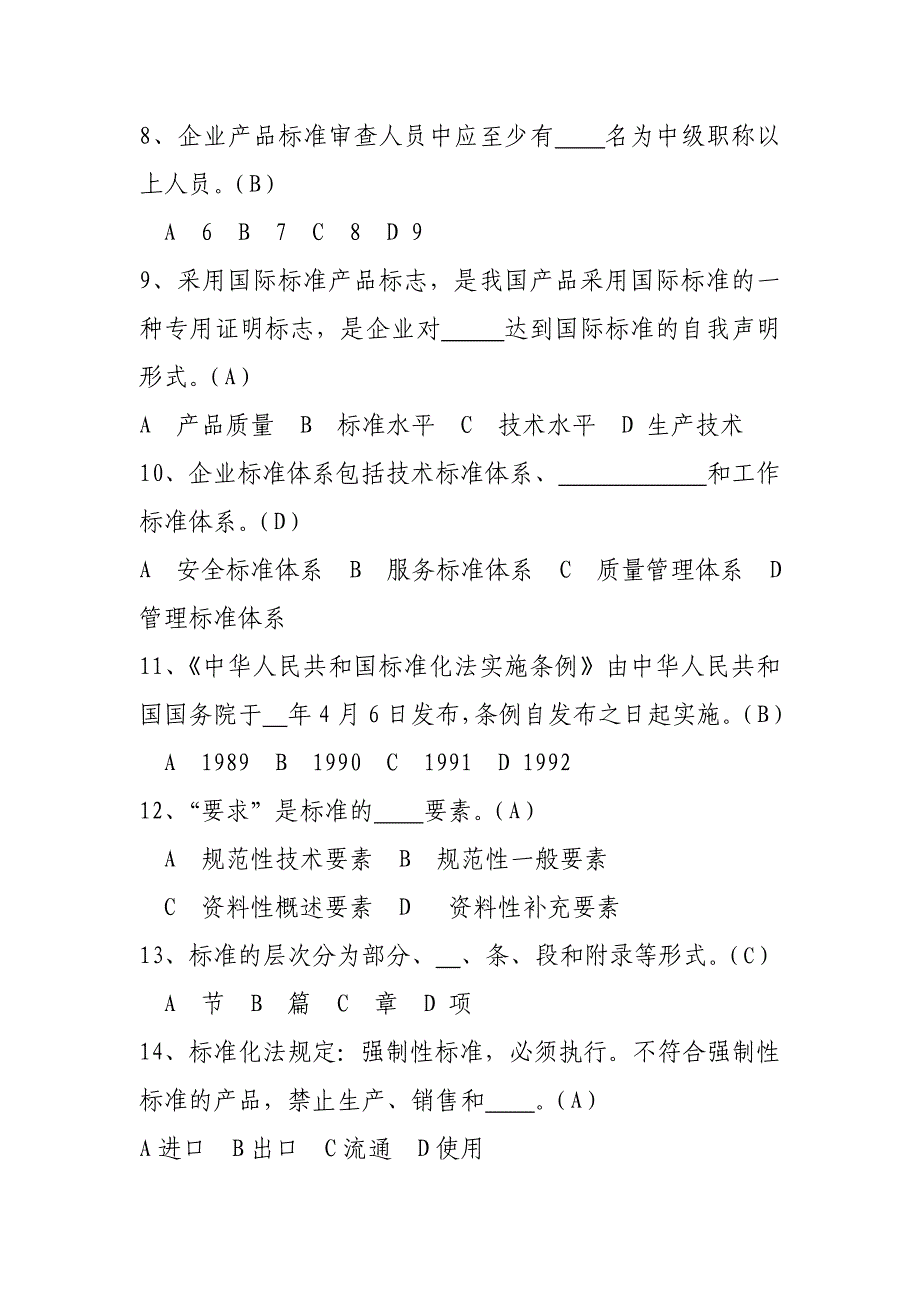 8、企业产品标准审查人员中应至少有____名为中级职称以
上人员。(B)
A 6 B 7 C 8 D 9
9、采用国际标准产品标志，是我国产品采用国际标准的一
种专用证明标志，是企业对_____达到国际标准的自我声明
形式。(A)
A 产品质量 B 标准水平 C 技术水平 D 生产技术
10、企业标准体系包括技术标准体系、____________和工作
标准体系。(D)
A 安全标准体系 B 服务标准体系 C 质量管理体系 D
管理标准体系
11、《中华人民共和国标准化法实施条例》由中华人民共和
国国务院于__年4月6日发布,条例自发布之日起实施。(B)
A 1989 B 1990 C 1991 D 1992
12、“要求”是标准的____要素。(A)
A 规范性技术要素 B 规范性一般要素
C 资料性概述要素 D 资料性补充要素
13、标准的层次分为部分、__、条、段和附录等形式。(C)
A 节 B 篇 C 章 D 项
14、标准化法规定：强制性标准，必须执行。不符合强制性
标准的产品，禁止生产、销售和____。(A)
A进口 B出口 C流通 D使用